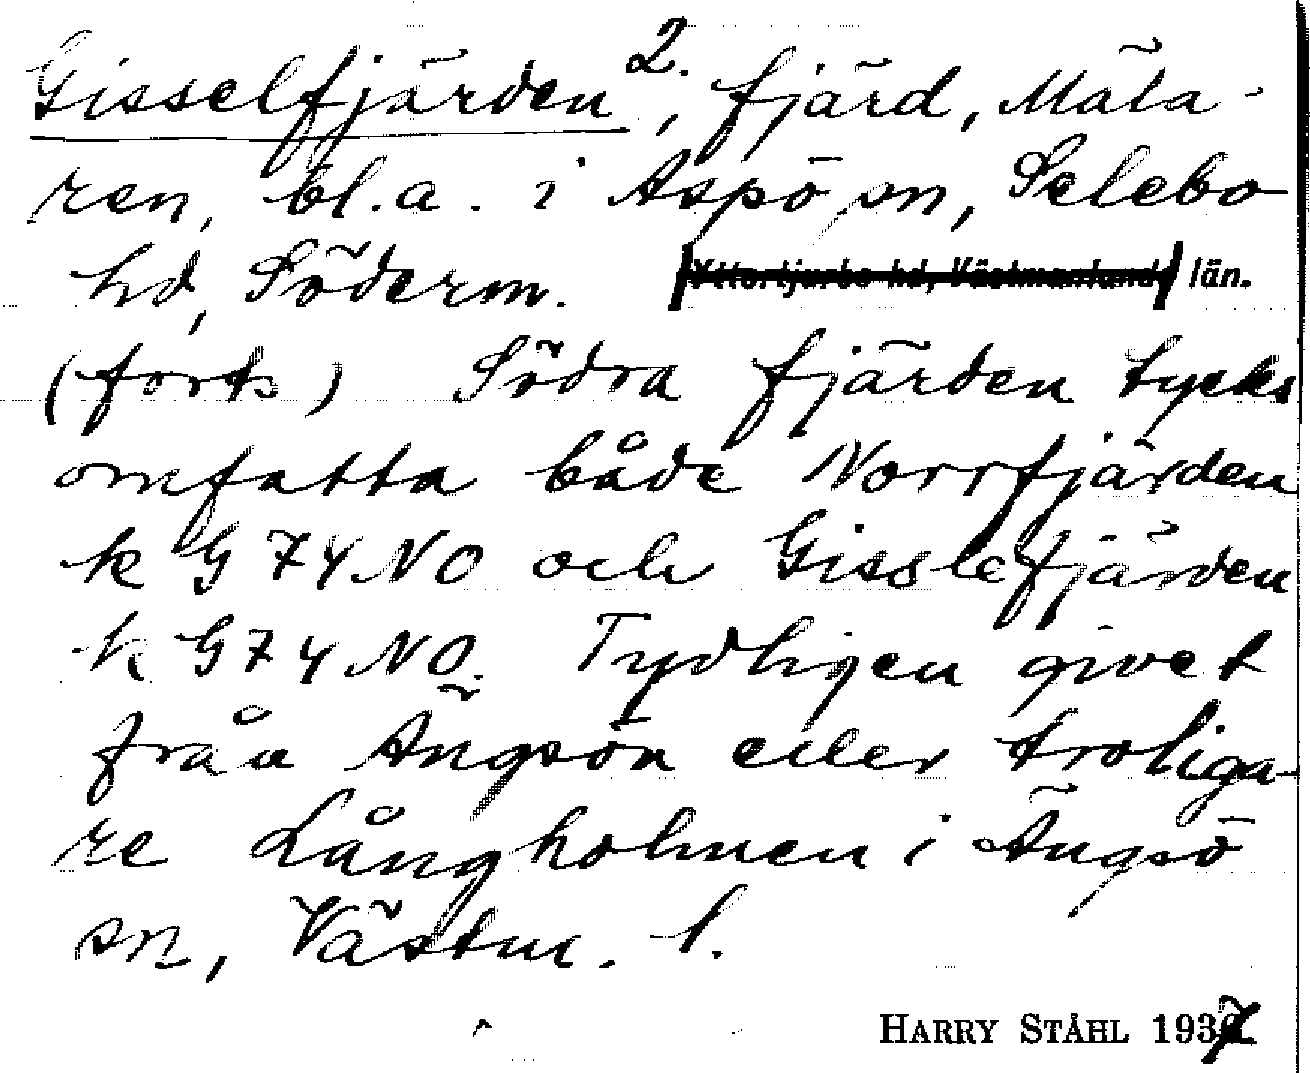 Gisselfjärden 2., fjärd, Mäla-
ren, bl.a. i Aspö sn, Selebo
hd, Söderm. [Yttertjurbo hd, Västmanlands] län.
(forts) Södra fjärden tycks
omfatta både Norrfjärden
k G 74 NO och Gisslefjärden
k G 74 NO. Tydligen givet
från Ängsön eller troliga-
re Långholmen i Ängsö
sn, Västm. l.
HARRY STÅHL 1937